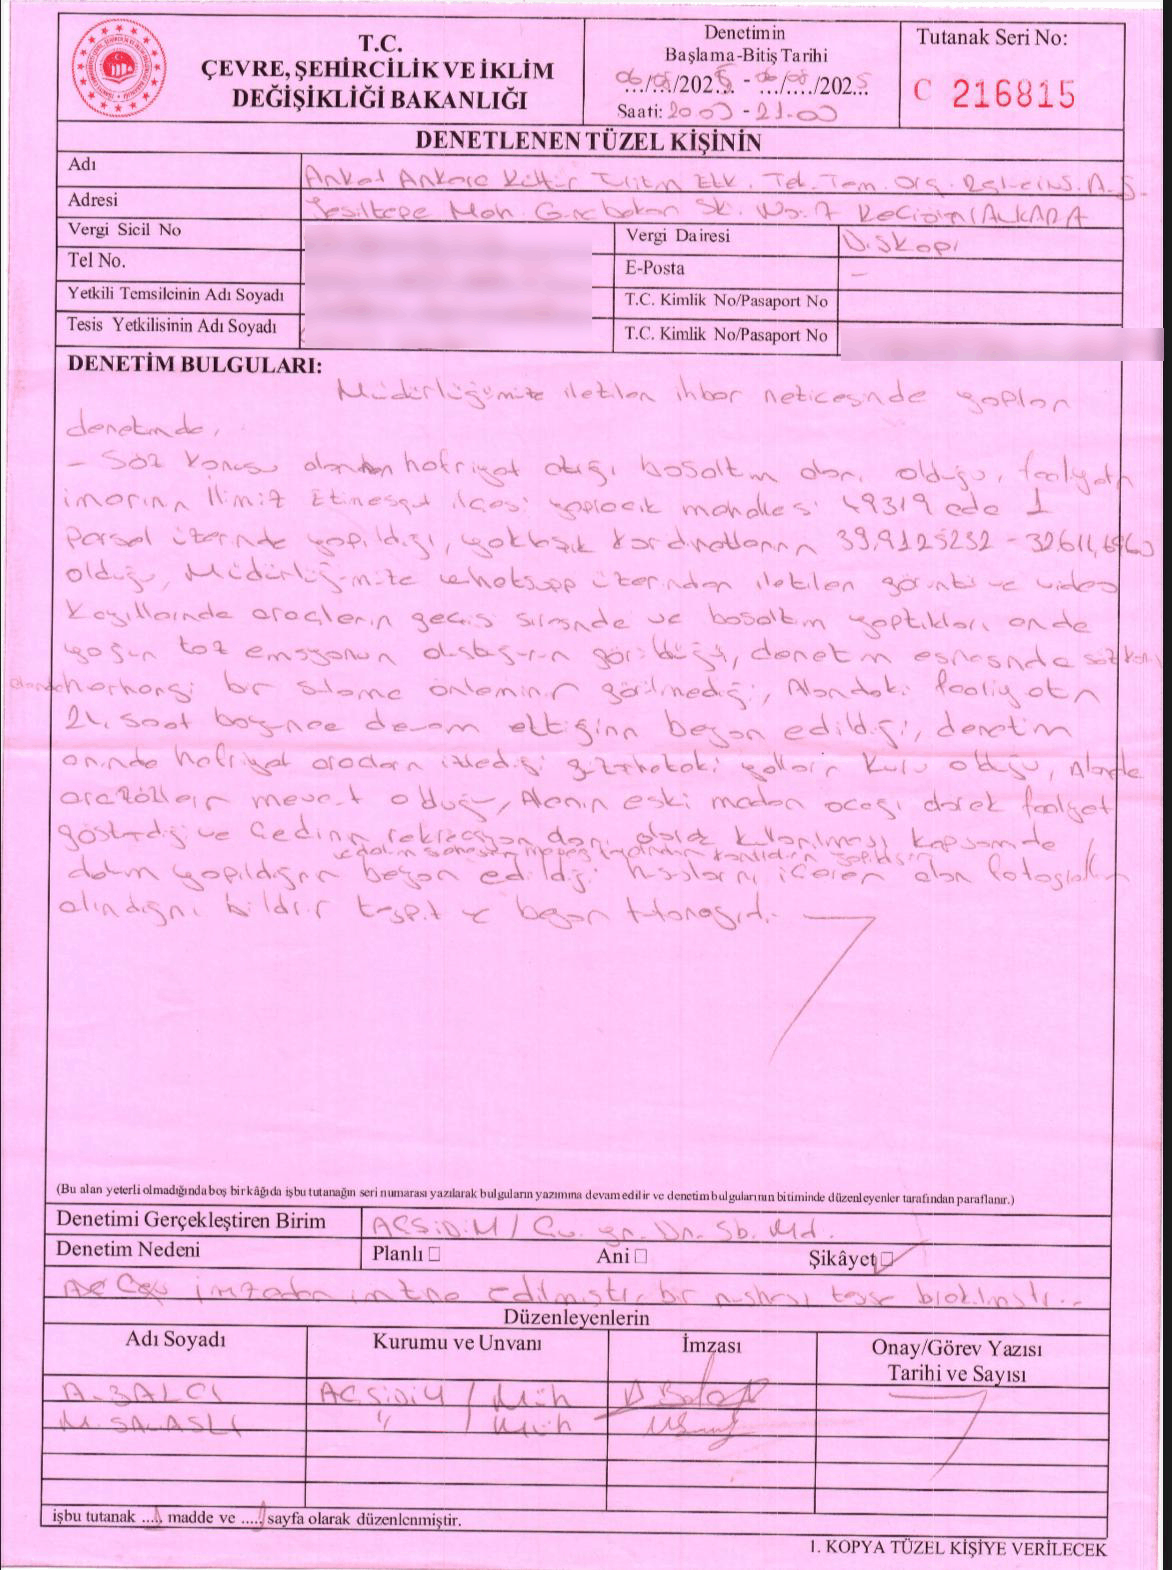 T.C.
ÇEVRE, ŞEHİRCİLİK VE İKLİM
DEĞİŞİKLİĞİ BAKANLIĞI
Denetimin
Başlama-Bitiş Tarihi
06/08/2025 - 06/08/2025
Saati: 20.00 - 21.00
Tutanak Seri No:
C 216815
DENETLENEN TÜZEL KİŞİNİN
Adı
Ankara Kültür Tem. Org. A.Ş.
Adresi
Yeşiltepe Mah. Sk. No: 7 Keçiören/ANKARA
Vergi Sicil No
Vergi Dairesi
Dışkapı
Tel No.
E-Posta
-
Yetkili Temsilcinin Adı Soyadı
T.C. Kimlik No/Pasaport No
Tesis Yetkilisinin Adı Soyadı
T.C. Kimlik No/Pasaport No
DENETİM BULGULARI:
Müdürlüğümüze iletilen ihbar neticesinde yapılan
denetimde,
- Söz konusu alanın hafriyat atığı boşaltım alanı olduğu, faaliyetin
İlimiz Etimesgut ilçesi Yapracık mahallesi 49319 ada 1
parsel üzerinde yapıldığı, yaklaşık kordinatların 39,9125232 -
olduğu, Müdürlüğümüze whatsapp üzerinden iletilen görüntü ve video
kayıtlarında araçların geçiş sırasında ve boşaltım yaptıkları anda
yoğun toz emisyonun oluştuğunun görüldüğü, denetim esnasında söz konusu
alanda herhangi bir sulama önleminin görülmediği, Alandaki faaliyetin
24 saat boyunca devam ettiğinin beyan edildiği, denetim
anında hafriyat araçların izlediği güzergahtaki yolların kuru olduğu, Alanda
arazözlerin mevcut olduğu, Alanın eski maden ocağı olarak faaliyet
gösterdiği ve rekreasyon alanı olarak kullanılması kapsamında
dolum yapıldığının beyan edildiği hususlarını içeren alan fotoğrafları
alındığını bildirir tespit ve beyan tutanağıdır.
(Bu alan yeterli olmadığında boş bir kâğıda işbu tutanağın seri numarası yazılarak bulguların yazımına devam edilir ve denetim bulgularının bitiminde düzenleyenler tarafından paraflanır.)
Denetimi Gerçekleştiren Birim
AÇŞİDİM / Çv. Dn. Şb. Md.
Denetim Nedeni
Planlı
Ani
Şikâyet
imzadan imtina edilmiştir bir nüshası tesise bırakılmıştır.
Düzenleyenlerin
Adı Soyadı
Kurumu ve Unvanı
İmzası
Onay/Görev Yazısı
Tarihi ve Sayısı
A. BALCI
AÇŞİDİM / Müh
M. " / Müh
işbu tutanak ..1.. madde ve ..1.. sayfa olarak düzenlenmiştir.
1. KOPYA TÜZEL KİŞİYE VERİLECEK